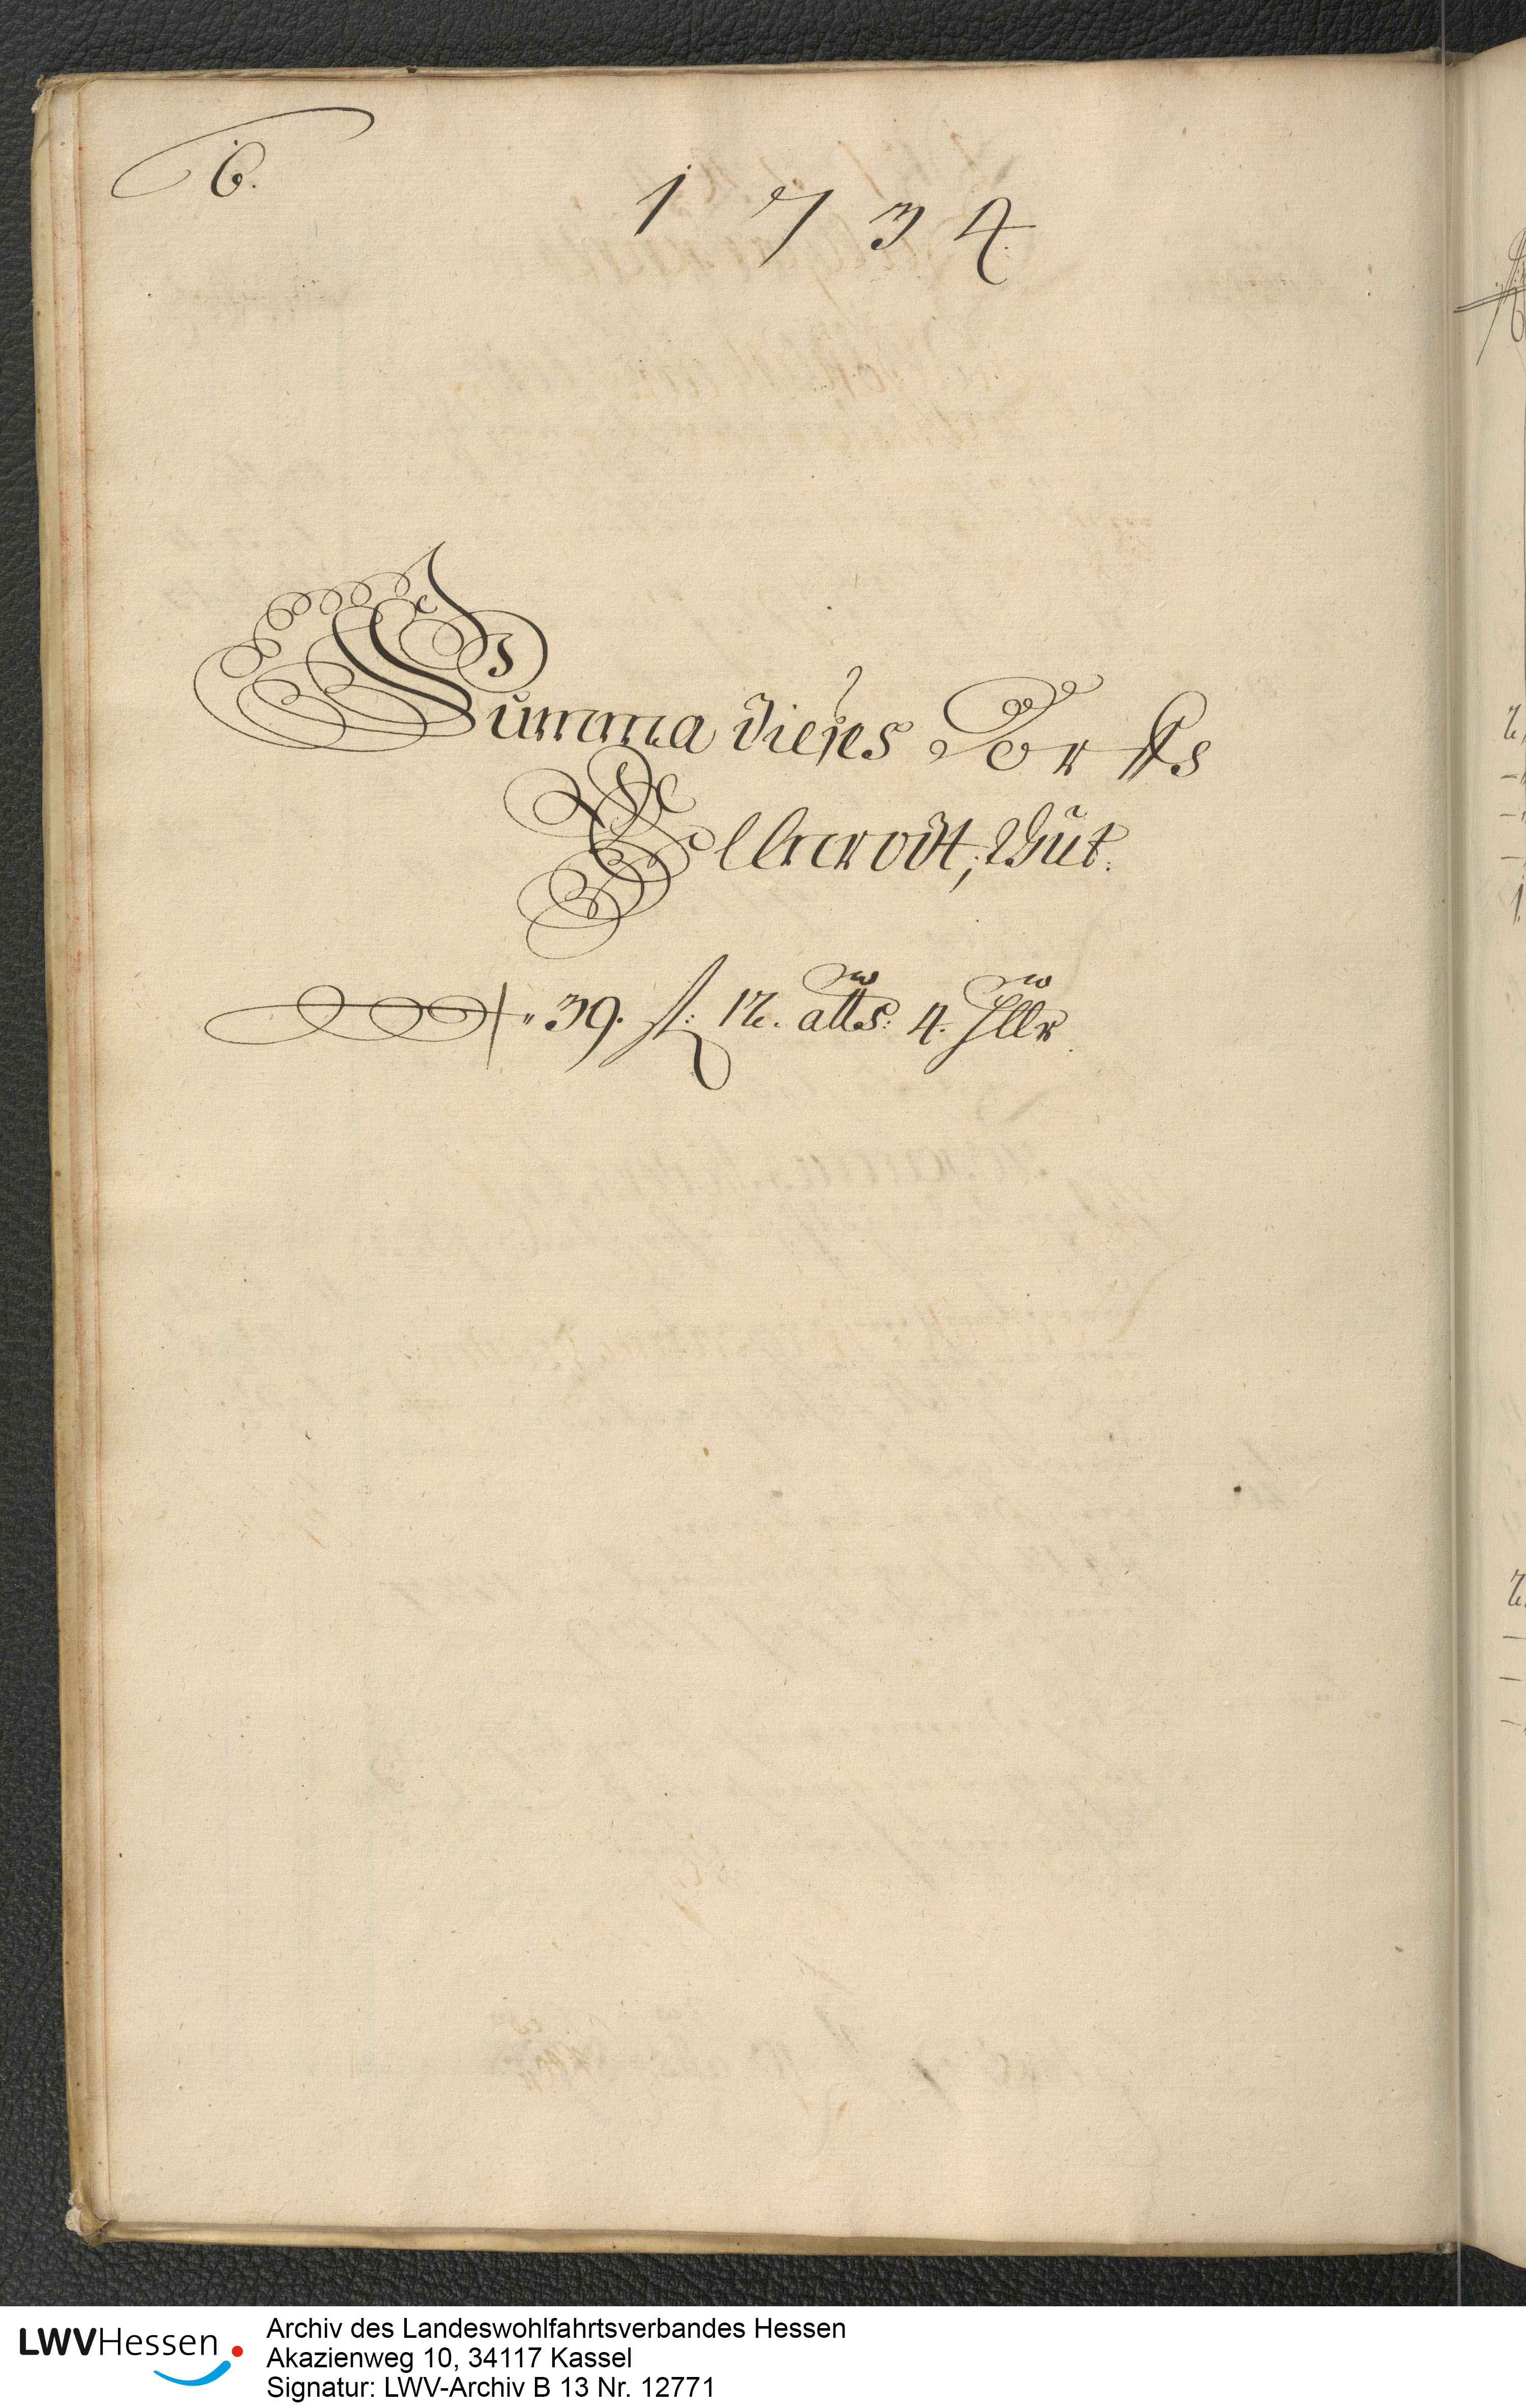 6.
1734
Summa dieses Dorffs
Ellnrodt, thut.
39. fl: 12. alb: 4. hllr
LWVHessen
Archiv des Landeswohlfahrtsverbandes Hessen
Akazienweg 10, 34117 Kassel
Signatur: LWV-Archiv B 13 Nr. 12771